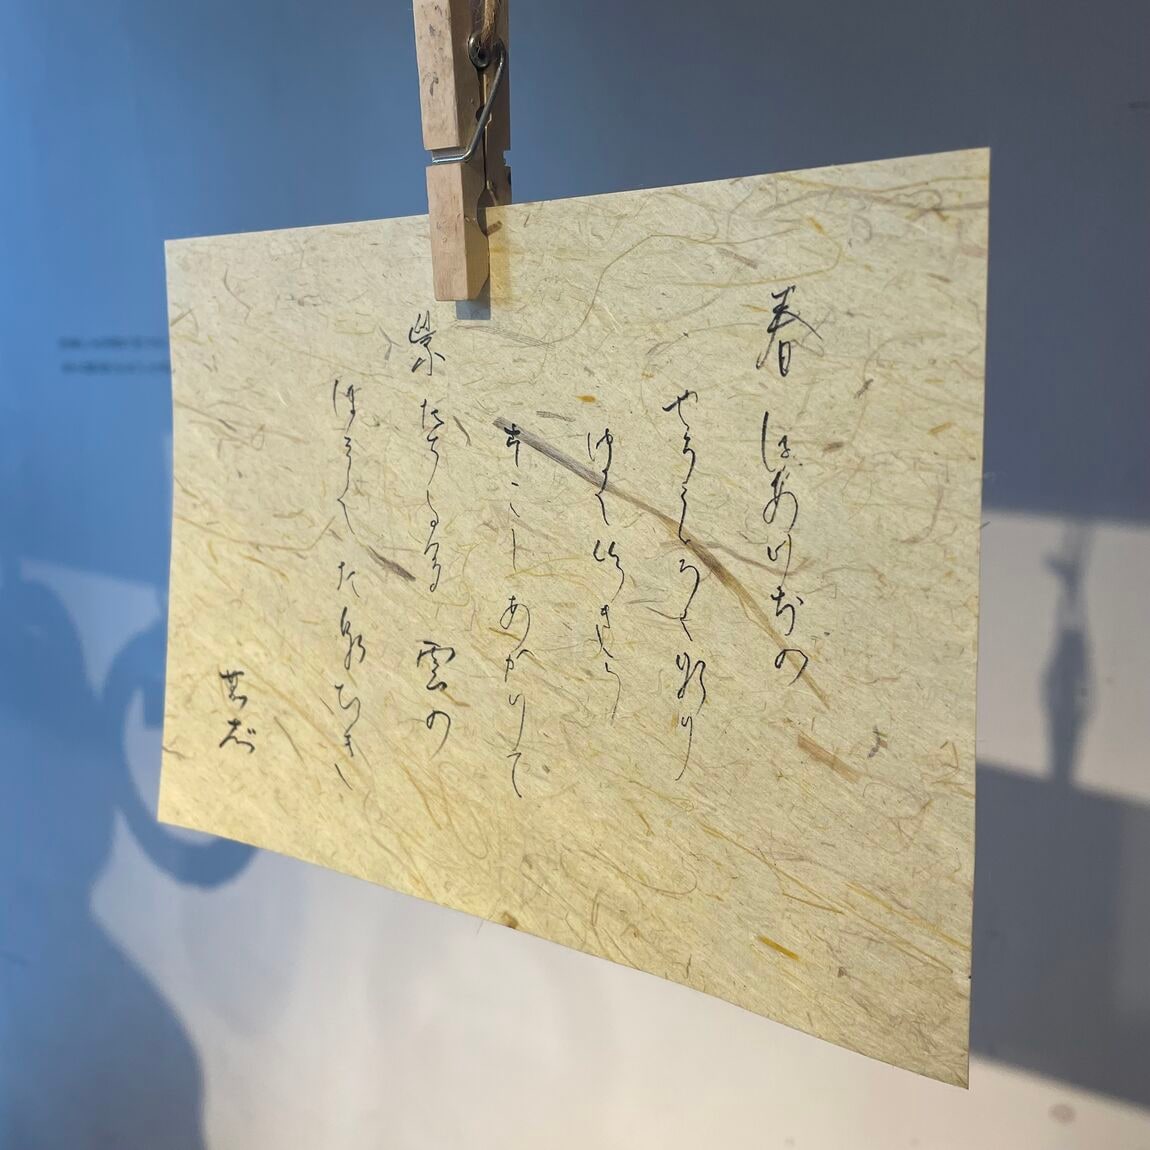 春はあけぼの
やうやうしろくなり
ゆく山きは
すこしあかりて
紫たちたる雲の
ほそくたなひき